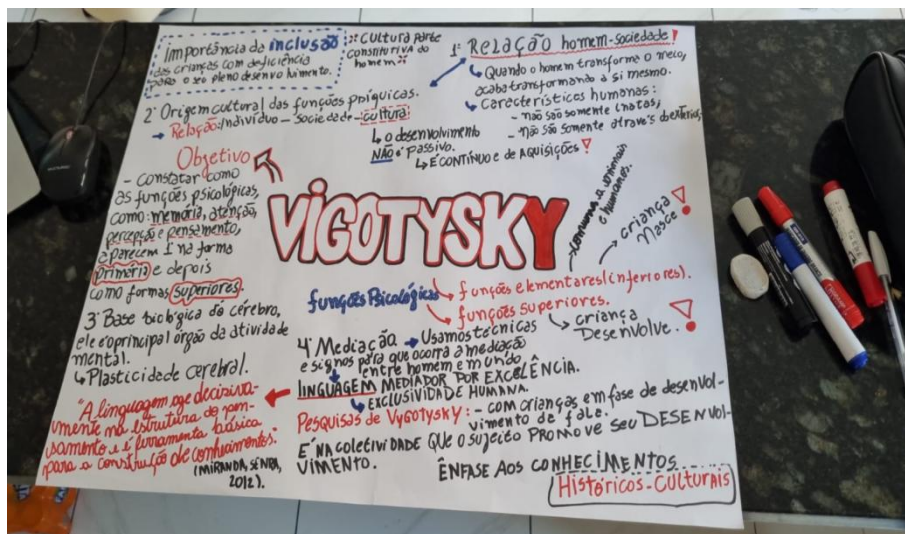 Importância da inclusão
das crianças com deficiência
para o seu pleno desenvolvimento.
:: Cultura parte
constitutiva do
homem ::
1ª Relação homem-sociedade!
↳ Quando o homem transforma o meio,
acaba transformando a si mesmo.
↳ Características humanas:
- não são somente inatas;
- não são somente através do exterior;
2ª Origem cultural das funções psíquicas.
→ Relação: indivíduo - sociedade - cultura
↳ o desenvolvimento
NÃO é passivo.
↳ É CONTÍNUO e DE AQUISIÇÕES!
Objetivo
- constatar como
as funções psicológicas,
como: memória, atenção,
percepção e pensamento,
aparecem 1º na forma
primária e depois
como formas superiores.
VIGOTYSKY
comuns a animais
e humanos.
criança
nasce!
funções Psicológicas
↳ funções elementares (inferiores).
↳ funções superiores.
↳ criança
Desenvolve.!
3ª Base biológica do cérebro,
ele é o principal órgão da atividade
mental.
↳ Plasticidade cerebral.
4ª Mediação. → Usamos técnicas
e signos para que ocorra a mediação
entre homem e mundo
LINGUAGEM MEDIADOR POR EXCELÊNCIA.
↳ EXCLUSIVIDADE HUMANA.
"A linguagem age decisiva-
mente na estrutura do pen-
samento e é ferramenta básica
para a construção de conhecimentos."
(MIRANDA, SENRA,
2012).
Pesquisas de Vygotysky: - com crianças em fase de desenvol-
vimento da fala.
É NA COLETIVIDADE QUE O SUJEITO PROMOVE SEU DESENVOL-
VIMENTO.
ÊNFASE AOS CONHECIMENTOS
Históricos-Culturais